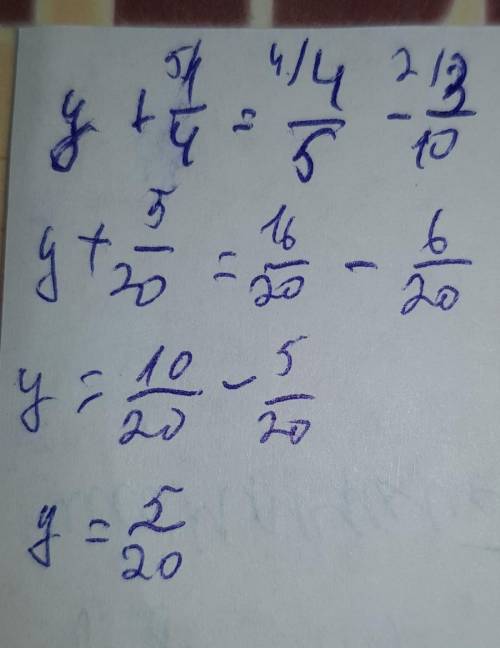 y + 5/ 1/4 = 4/ 4/5 - 2/ 3/10
y + 5/20 = 16/20 - 6/20
y = 10/20 - 5/20
y = 5/20